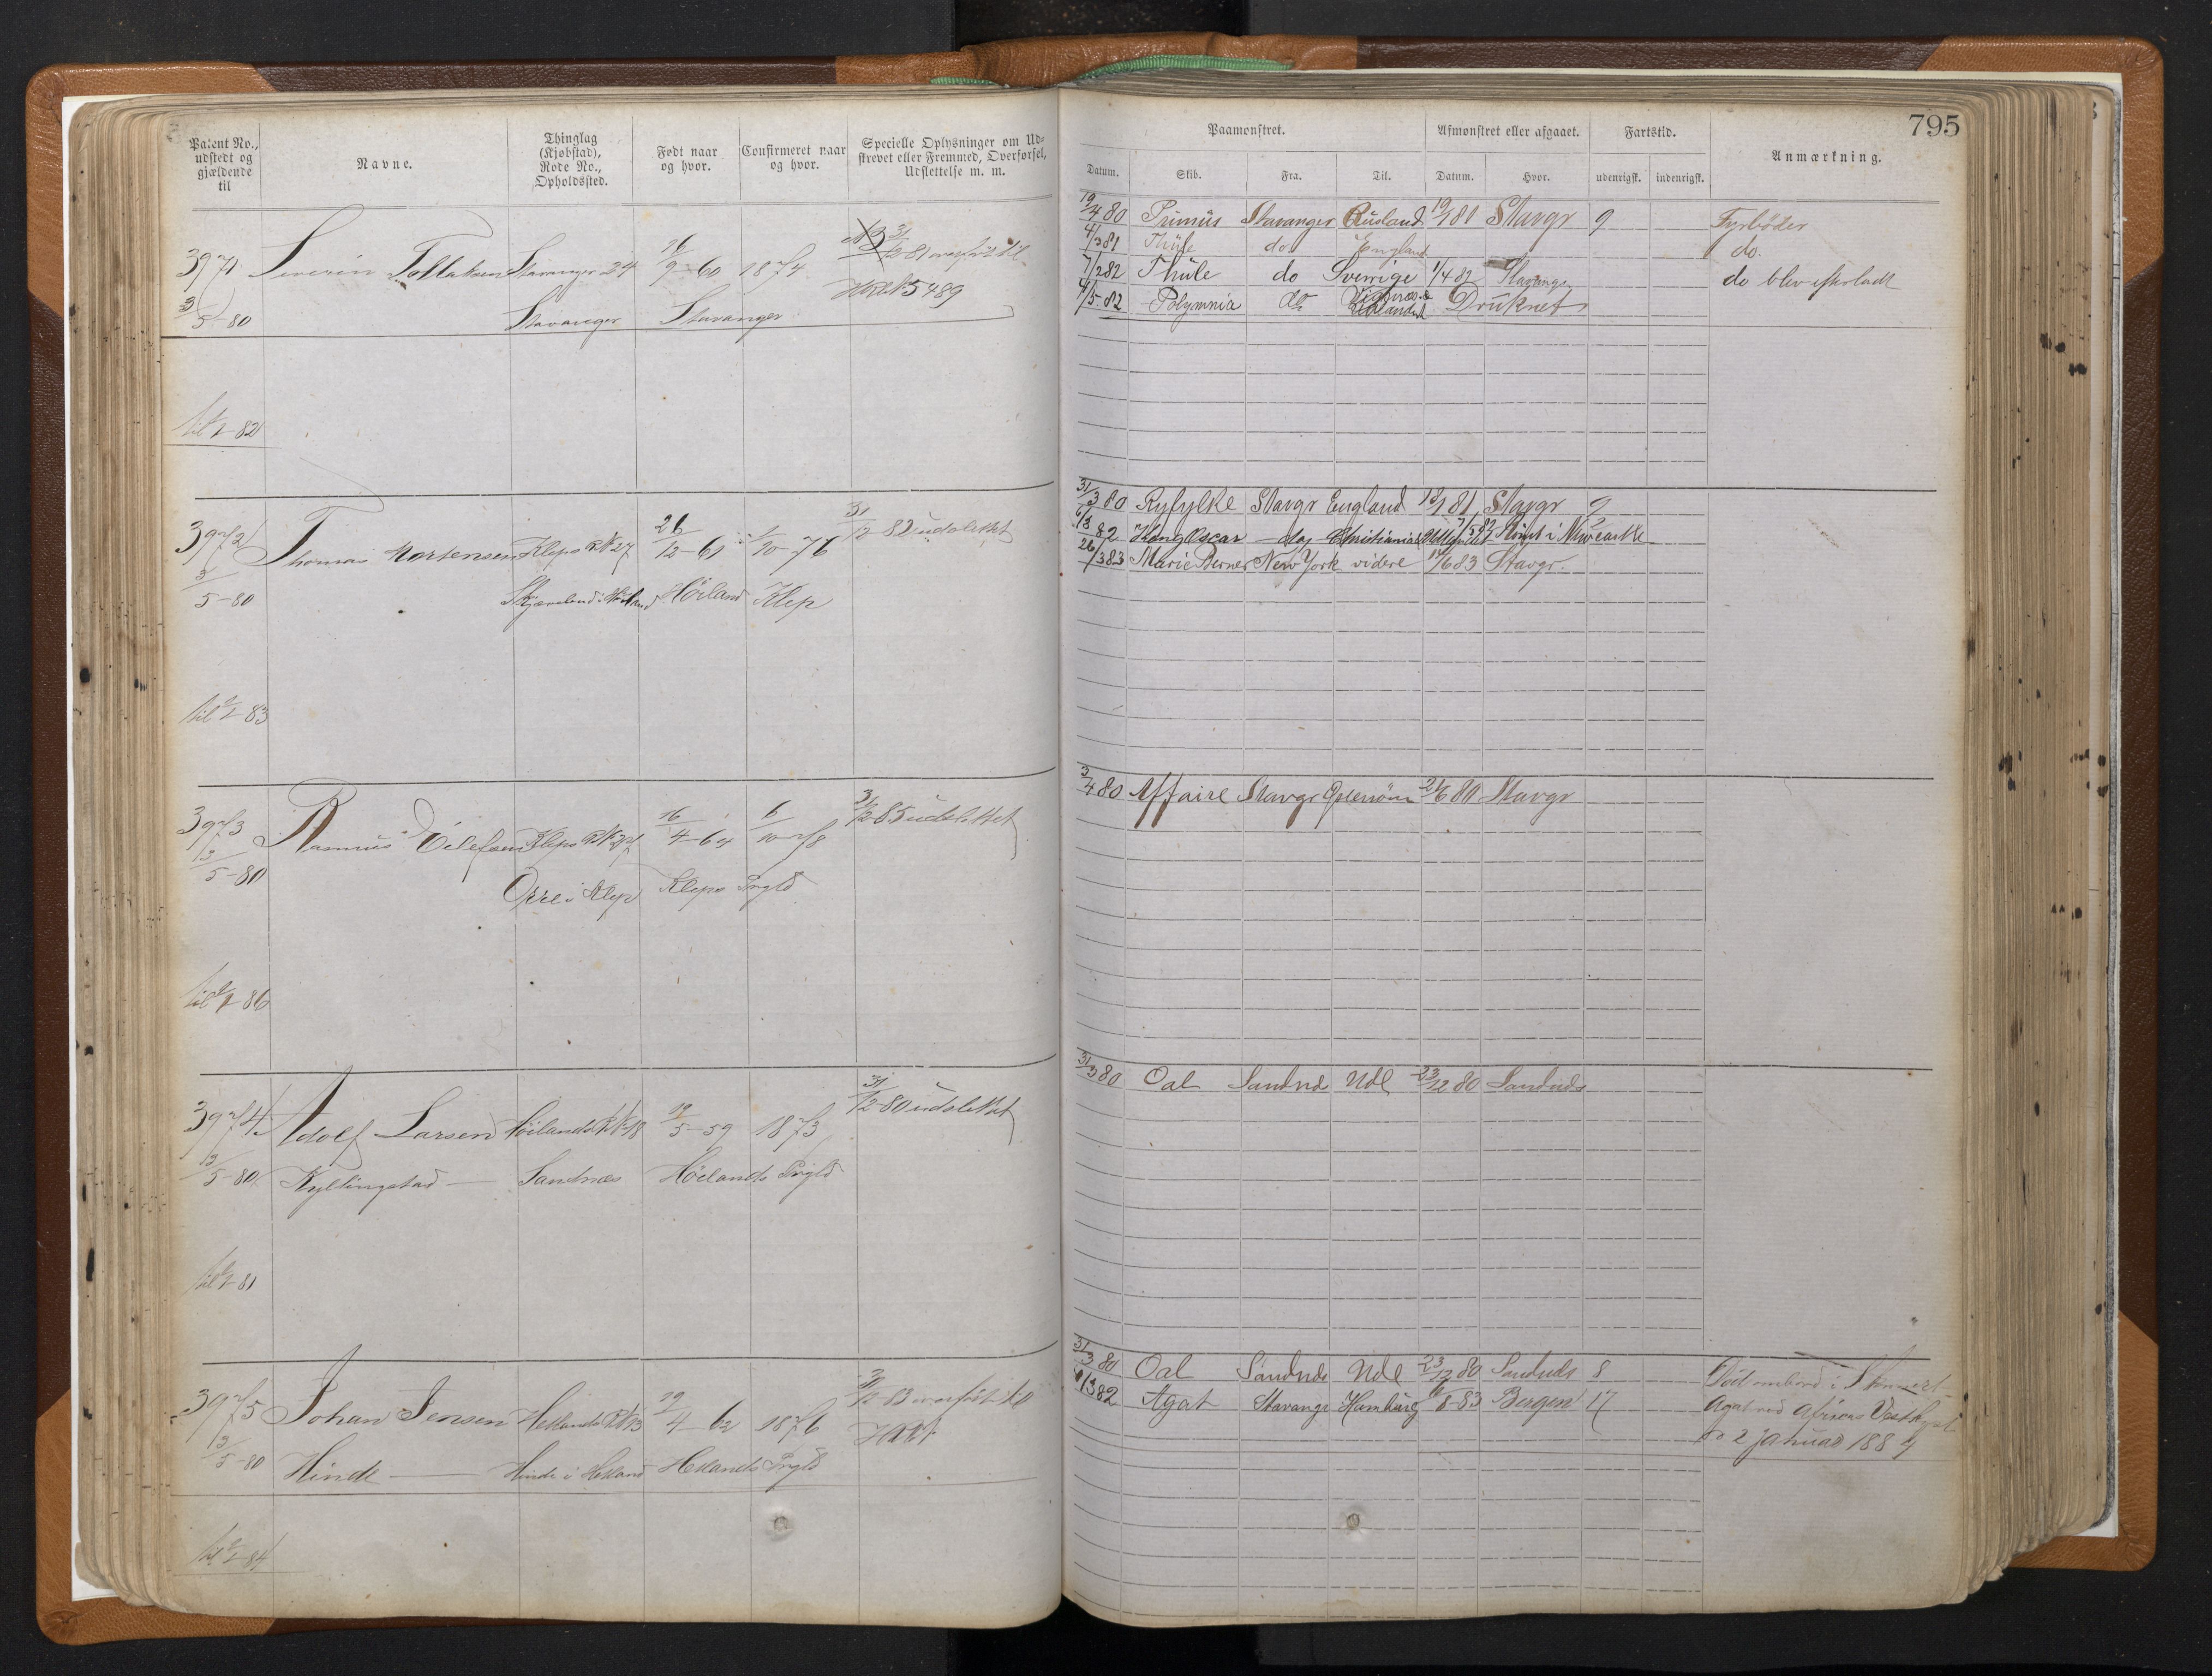 Patent No., udstedt og gjældende til
Navne.
Thinglag (Kjøbstad), Rode No., Opholdssted.
Født naar og hvor.
Confirmeret naar og hvor.
Specielle Oplysninger om Udskrevet eller Fremmed, Overførsel, Udslettelse m. m.
3971 Severin Tollaksen Stavanger 24 16/9-60 1874 31/12-81 overført til
3/5-80 Stavanger Stavanger 5489
til 1/1-82
3972 Thomas Mortensen Klep RN 27 26/12-61 1/10-76 31/12-82 udslettet
3/5-80 Høiland Klep
til 1/1-83
3973 Rasmus Klep 16/4-64 6/10-78 31/12-85 udslettet
13/5-80 Orre i Klep Kleps Prgld
til 1/1-86
3974 Adolf Larsen Høilands RN 18 19/5-59 1873 31/12-80 udslettet
13/5-80 Kyllingstad Sandnæs Høilands Prgld
til 1/1-81
3975 Johan Jensen Hetlands 19/4-62 1876 31/12-83 overført til
13/5-80 Hinde Hinde i Hetland Hetlands Prgld
til 1/1-84
795
Paamønstret.
Afmønstret eller afgaaet.
Fartstid.
Anmærkning.
Datum. Skib. Fra. Til. Datum. Hvor. udenrigsk. indenrigsk.
19/4 80 Primus Stavanger Rusland 19/1 81 Stavgr 9 Fyrbøder
4/3 81 Thule do England do.
7/2 82 Thule do Sverige 1/4 82 Stavanger do blev efterladt
4/5 82 Polymnia do Udlandet Druknet
31/3 80 Ryfylke Stavgr England 81 Stavgr 9
82 Kong Oscar Christiania Rømt i Newcastle
26/3 83 Marie Berner New York videre 6 83 Stavgr.
3/4 80 Affaire Stavgr 80 Stavgr
31/3 80 Oal Sandnæs Udl 23/12 80 Sandnæs
31/3 80 Oal Sandnæs Udl 23/12 80 Sandnæs 8
3 82 Agat Stavangr Hamburg 8-83 Bergen 17
Død ombord i
Agat ved Africas Vestkyst
2 Januar 1884